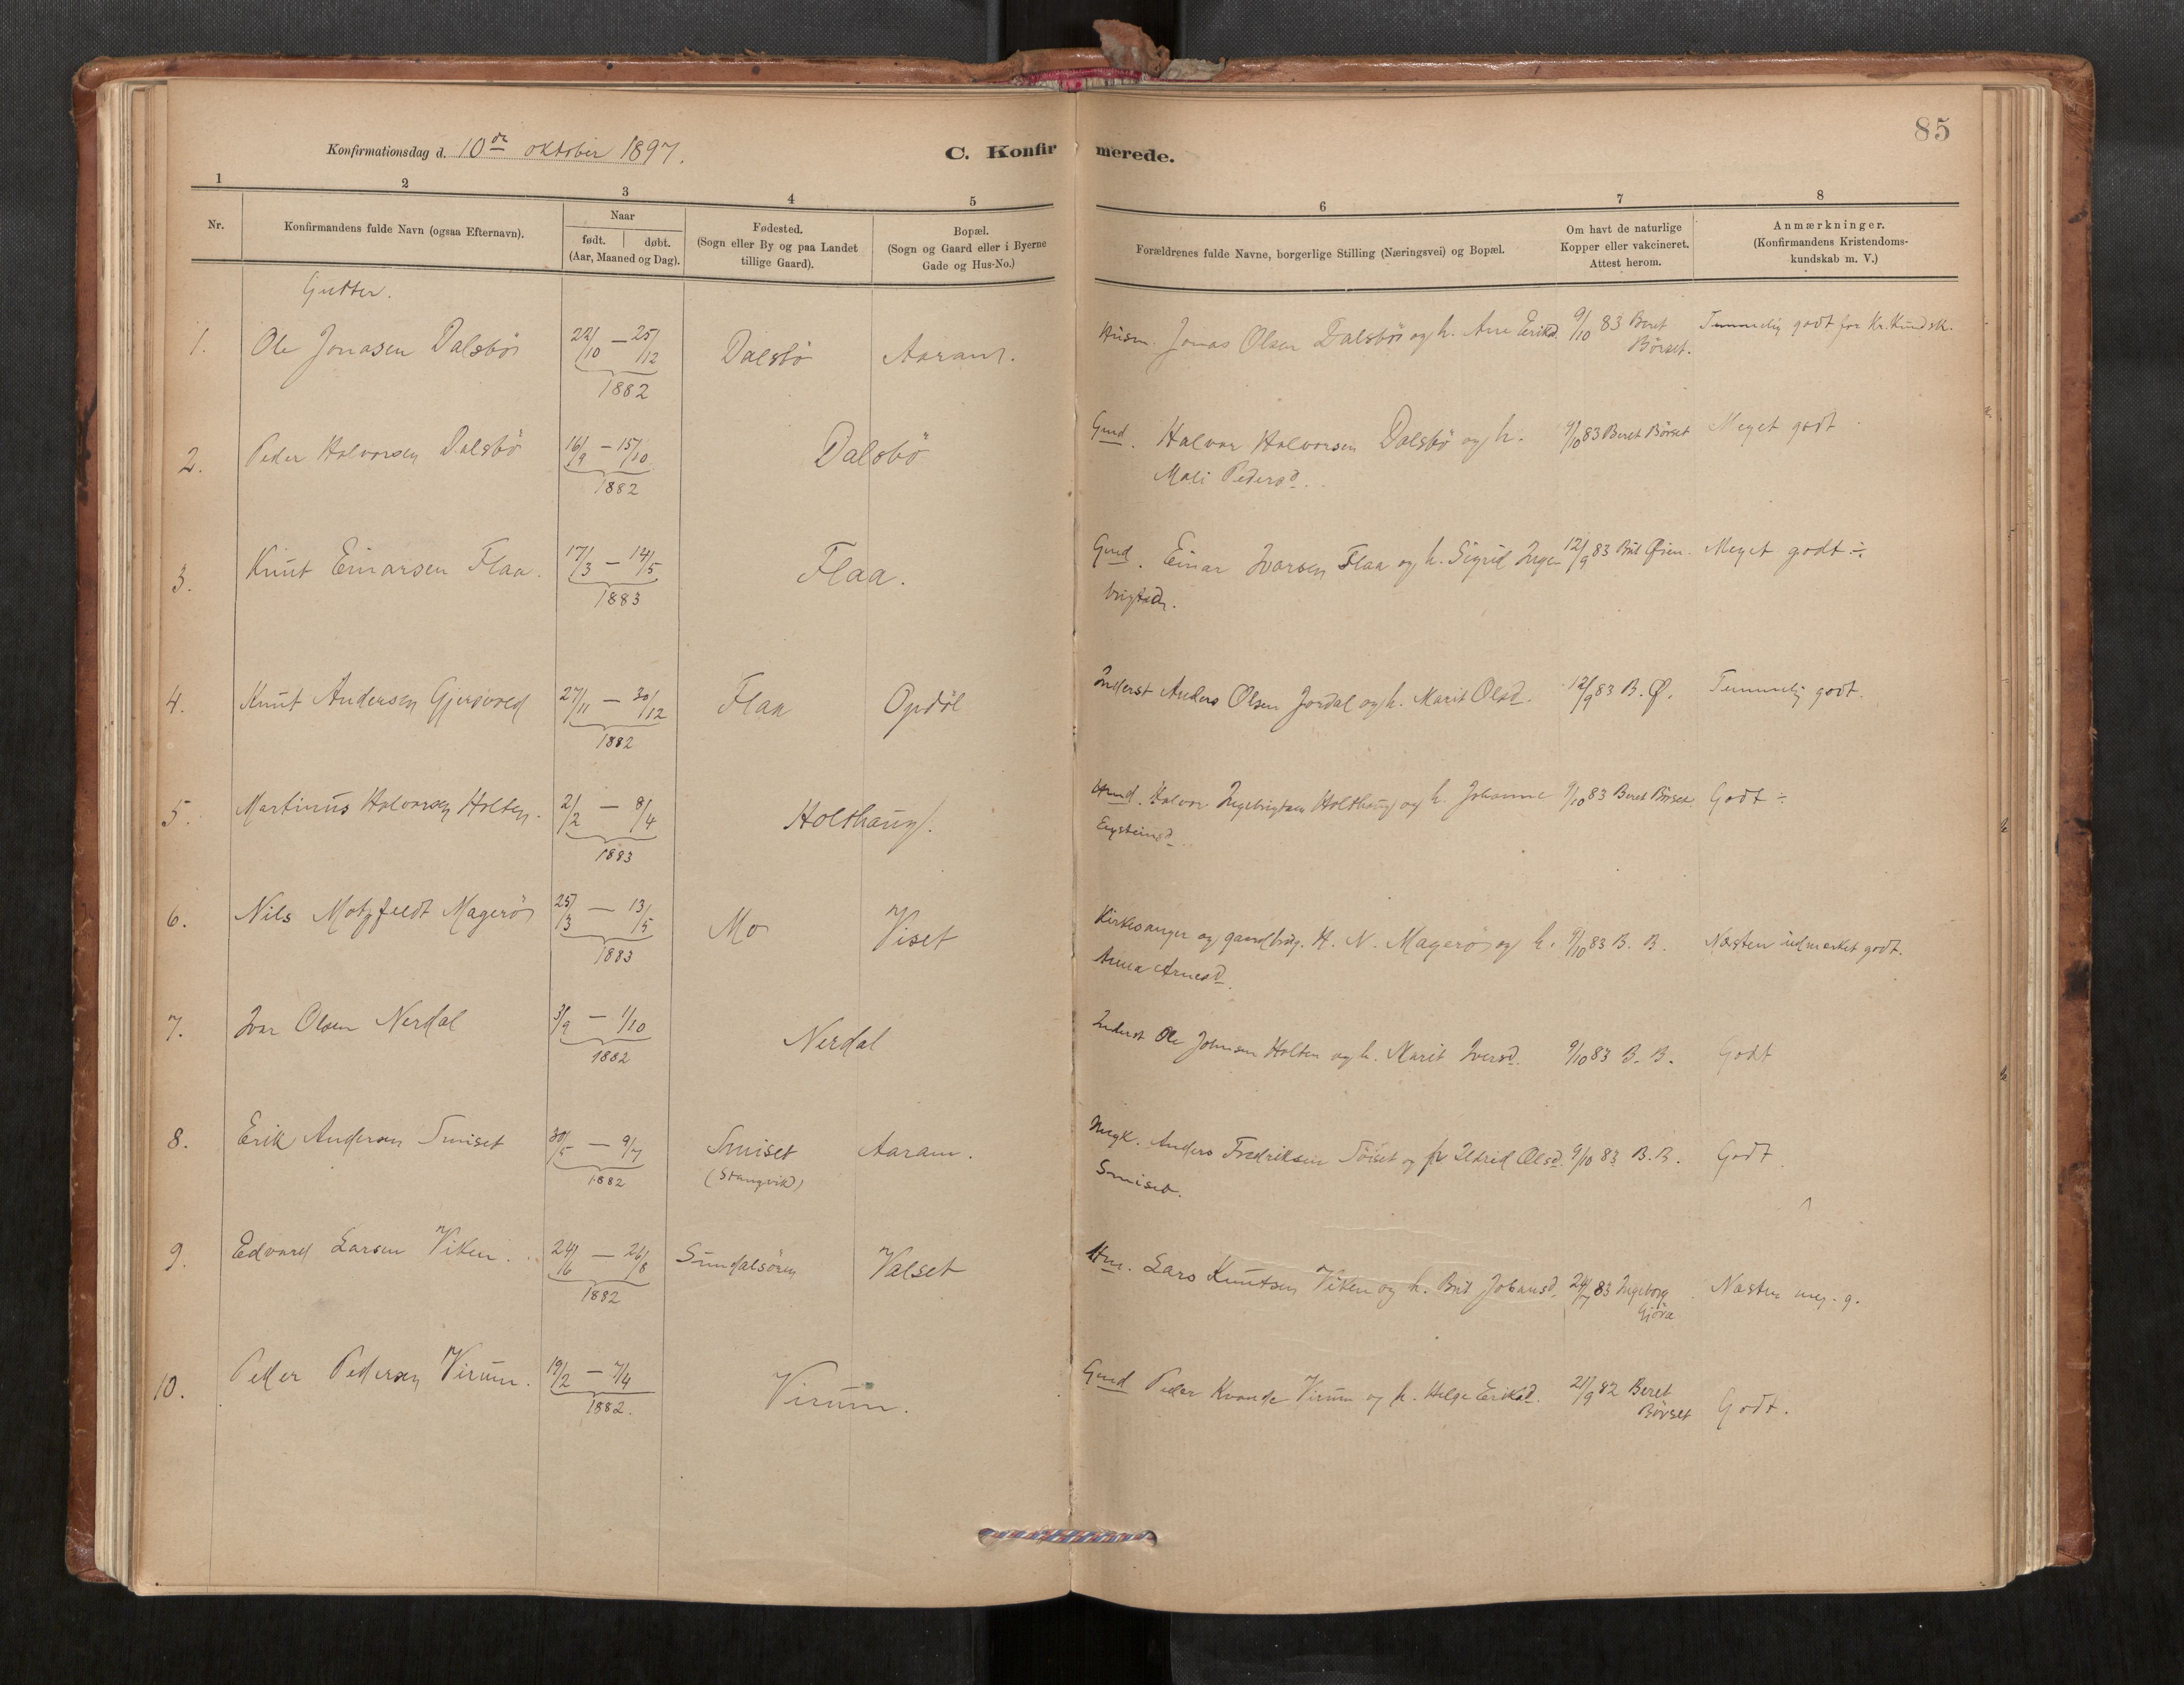 85
Konfirmationsdag d. 10de oktober 1897.
C. Konfirmerede.
1 2 3 4 5 6 7 8
Nr.
Konfirmandens fulde Navn (ogsaa Efternavn).
Naar
født. | døbt.
(Aar, Maaned og Dag).
Fødested.
(Sogn eller By og paa Landet
tillige Gaard).
Bopæl.
(Sogn og Gaard eller i Byerne
Gade og Hus-No.)
Forældrenes fulde Navne, borgerlige Stilling (Næringsvei) og Bopæl.
Om havt de naturlige
Kopper eller vakcineret.
Attest herom.
Anmærkninger.
(Konfirmandens Kristendoms-
kundskab m. V.)
Gutter.
1. Ole Jonasen Dalsbö 22/10 — 25/12 1882 Dalsbö Aaram. Husm. Jonas Olsen Dalsbö og h. Ane Eriksd. 9/10 83 Beret Börset. Temmelig godt for Kr. Kundsk.
2. Peder Halvorsen Dalsbö 16/9 — 15/10 1882 Dalsbö Gmd. Halvor Halvorsen Dalsbö og h. 9/10 83 Beret Börset Meget godt
Mali Pedersd.
3. Knut Einarsen Flaa. 17/3 — 14/5 1883 Flaa. Gmd. Einar Ivarsen Flaa og h. Sigrid Inge- 12/9 83 Brit Øien. Meget godt ÷
brigtsdr.
4. Knut Andersen Gjersvold 27/11 — 30/12 1882 Flaa Opdöl Inderst Anders Olsen Jordal og h. Marit Olsd. 12/9 83 B. Ø. Temmelig godt.
5. Martinus Halvorsen Holten. 2/2 — 8/4 1883 Holthaug. Gmd. Halvor Ingebrigtsen Holthaug og h. Johanne 9/10 83 Beret Börset Godt ÷
Eysteinsd.
6. Nils Motzfeldt Magerö 25/3 — 13/5 1883 Mo Viset Kirkesanger og gaardbrug. H. N. Magerö og h. 9/10 83 B. B. Næsten udmærket godt.
Anna Arnesd.
7. Ivar Olsen Nerdal 3/9 — 1/10 1882 Nerdal Inderst Ole Johnsen Holten og h. Marit Iversd. 9/10 83 B. B. Godt
8. Erik Andersen Smiset 30/5 — 9/7 1882 Smiset (Stangvik) Aaram. Ungk. Anders Fredriksen og p. Ildrid Olsd. 9/10 83 B. B. Godt
Smiset.
9. Edvard Larsen Viken. 24/6 — 26/8 1882 Sundalsören Valset Hm. Lars Knutsen Viken og h. Brit Johansd. 24/7 83 Ingeborg Gjöra Næsten meg. g.
10. Peder Pedersen Virum. 19/2 — 7/4 1882. Virum. Gmd Peder Kvande Virum og h. Helge Eriksd. 21/9 82 Beret Börset Godt.